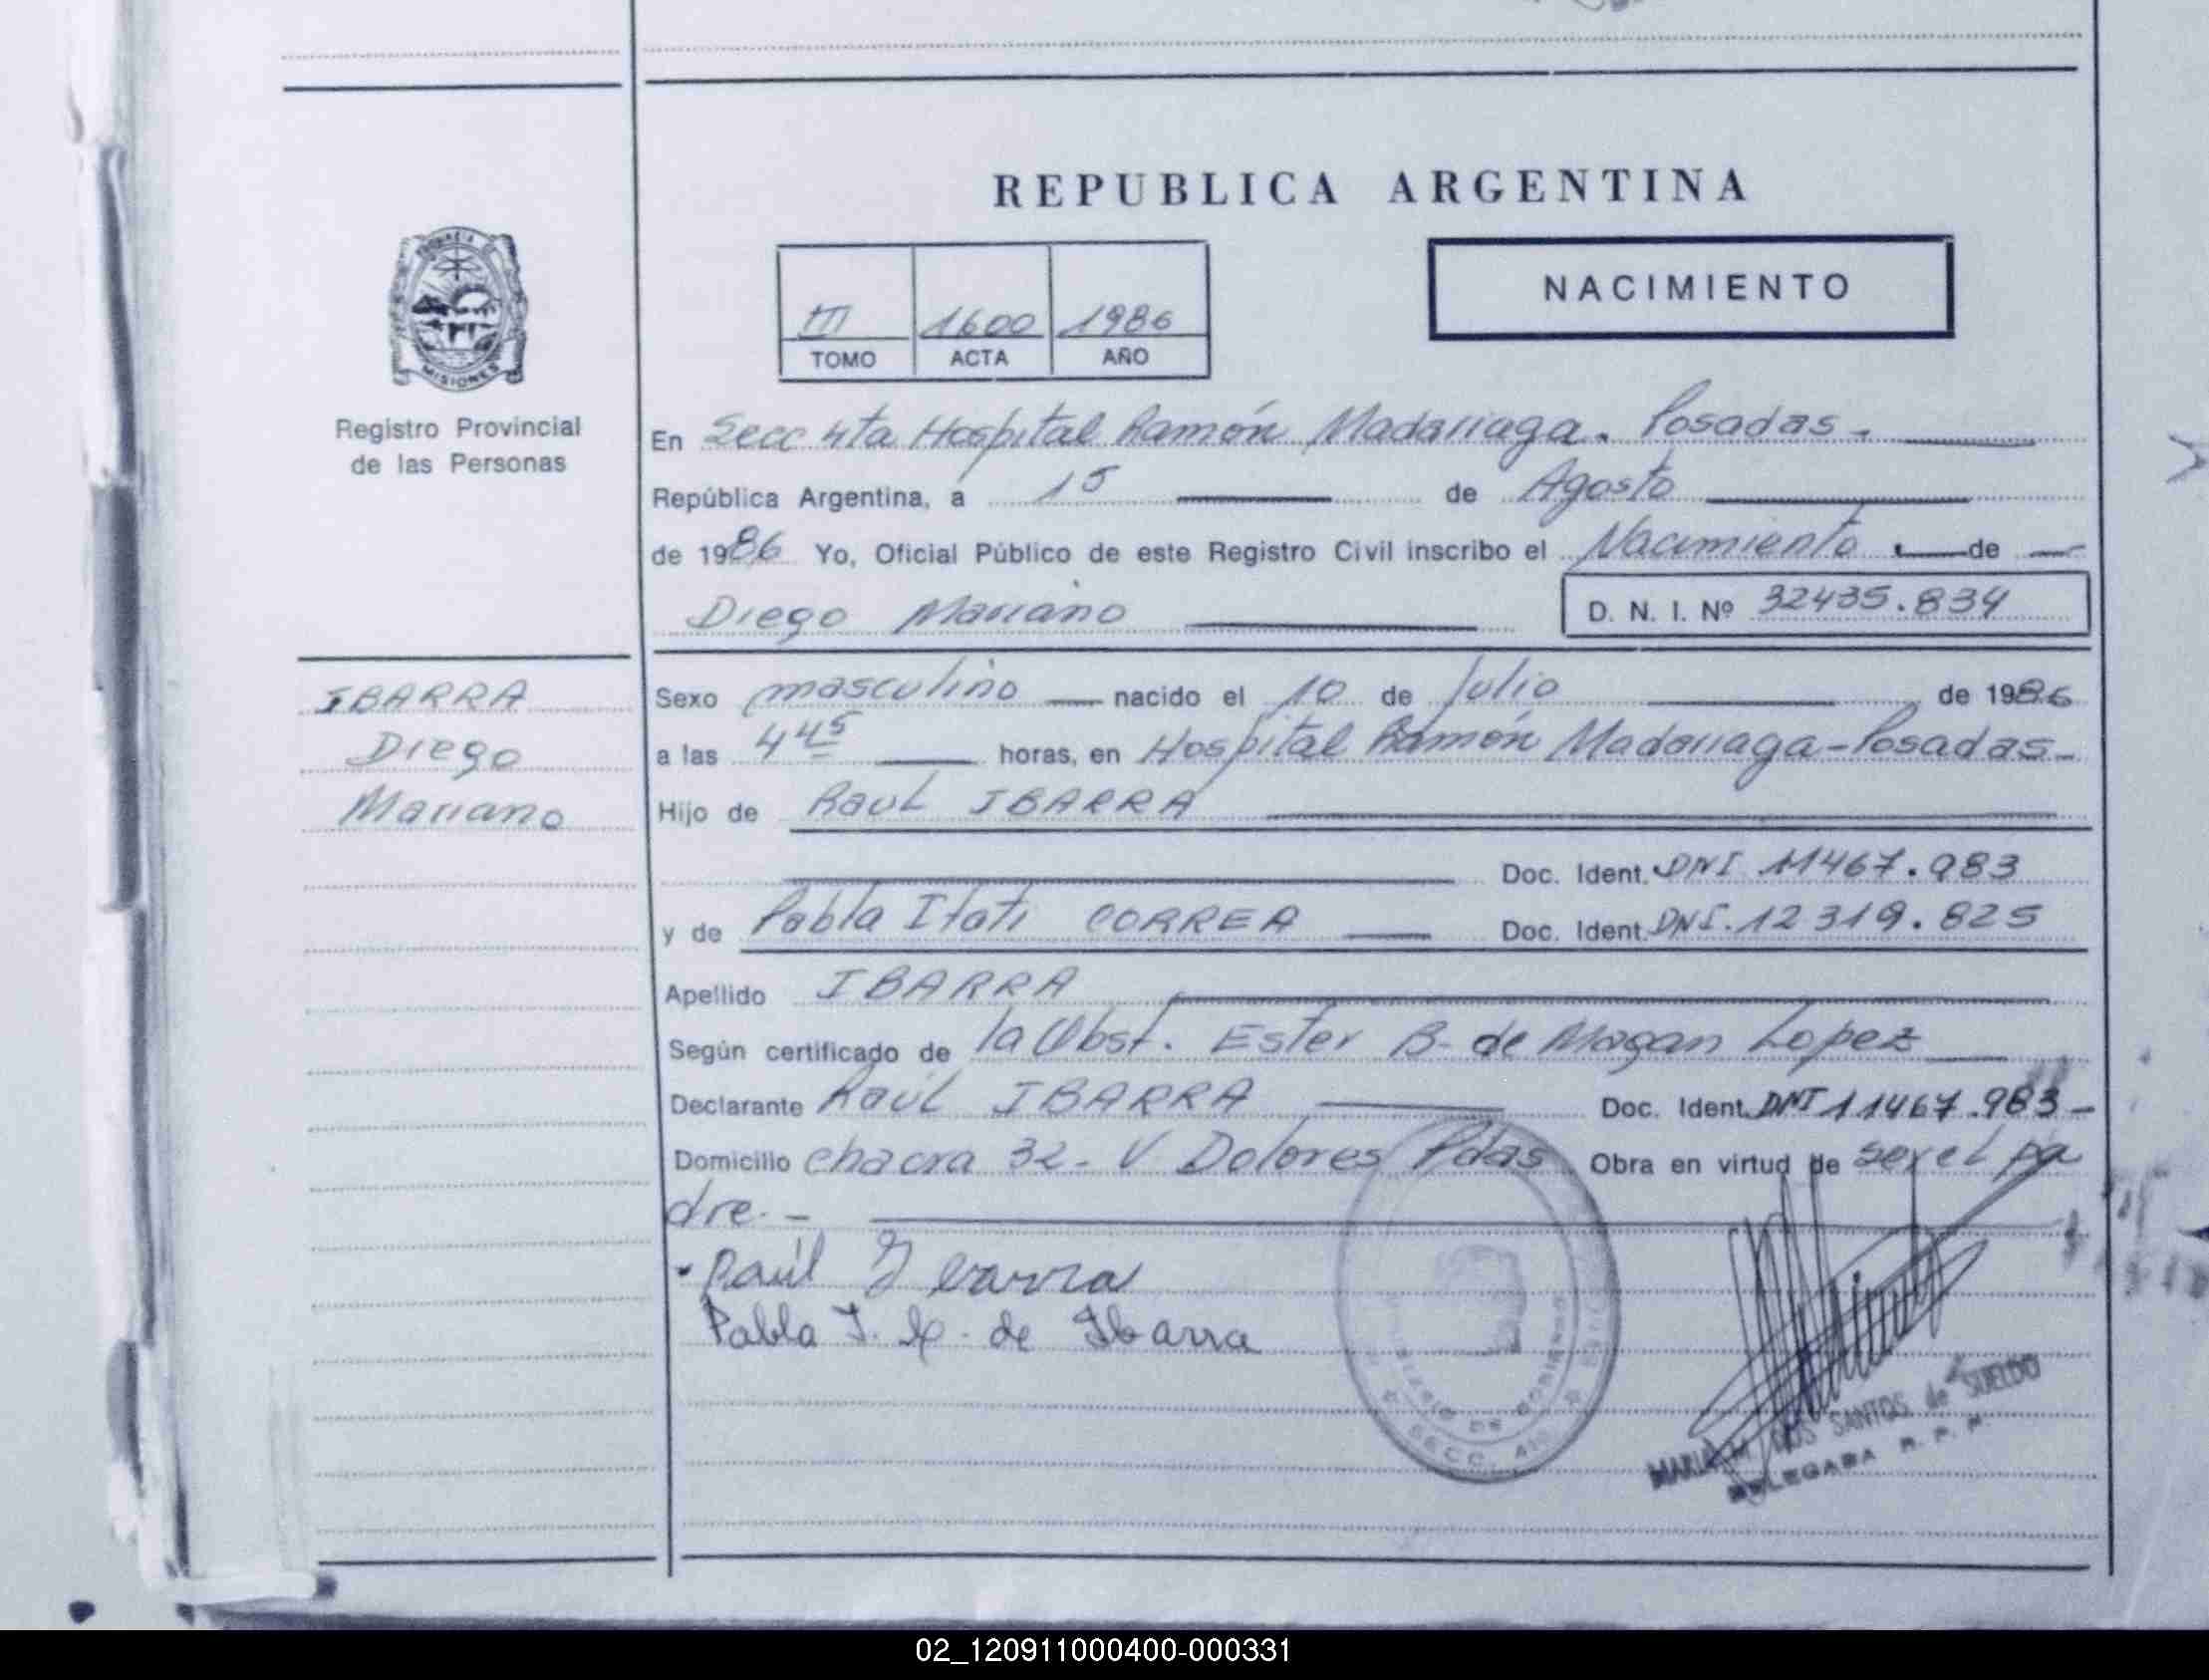 REPUBLICA ARGENTINA
NACIMIENTO
III 1600 1986
TOMO ACTA AÑO
MISIONES
Registro Provincial
de las Personas
En Secc 4ta Hospital Ramón Madariaga. Posadas.
República Argentina, a 15 de Agosto
de 1986 Yo, Oficial Público de este Registro Civil inscribo el Nacimiento de
Diego Mariano D. N. I. Nº 32435.834
IBARRA
Diego
Mariano
Sexo masculino nacido el 10 de Julio de 1986
a las 4 45 horas, en Hospital Ramón Madariaga-Posadas-
Hijo de Raul IBARRA
Doc. Ident. DNI 11467.983
y de Pabla Itati CORREA Doc. Ident. DNI. 12319.825
Apellido IBARRA
Según certificado de la Obst. Ester B. de Magan Lopez
Declarante Raúl IBARRA Doc. Ident. DNI 11467.983-
Domicilio chacra 32- V Dolores Pdas Obra en virtud de ser el pa
dre.-
Raúl Ibarra
Pabla I. C. de Ibarra
MINISTERIO DE GOBIERNO
SECC. 4ta
MARIA M. DOS SANTOS de SUELDO
DELEGADA R. P. P.
02_120911000400-000331